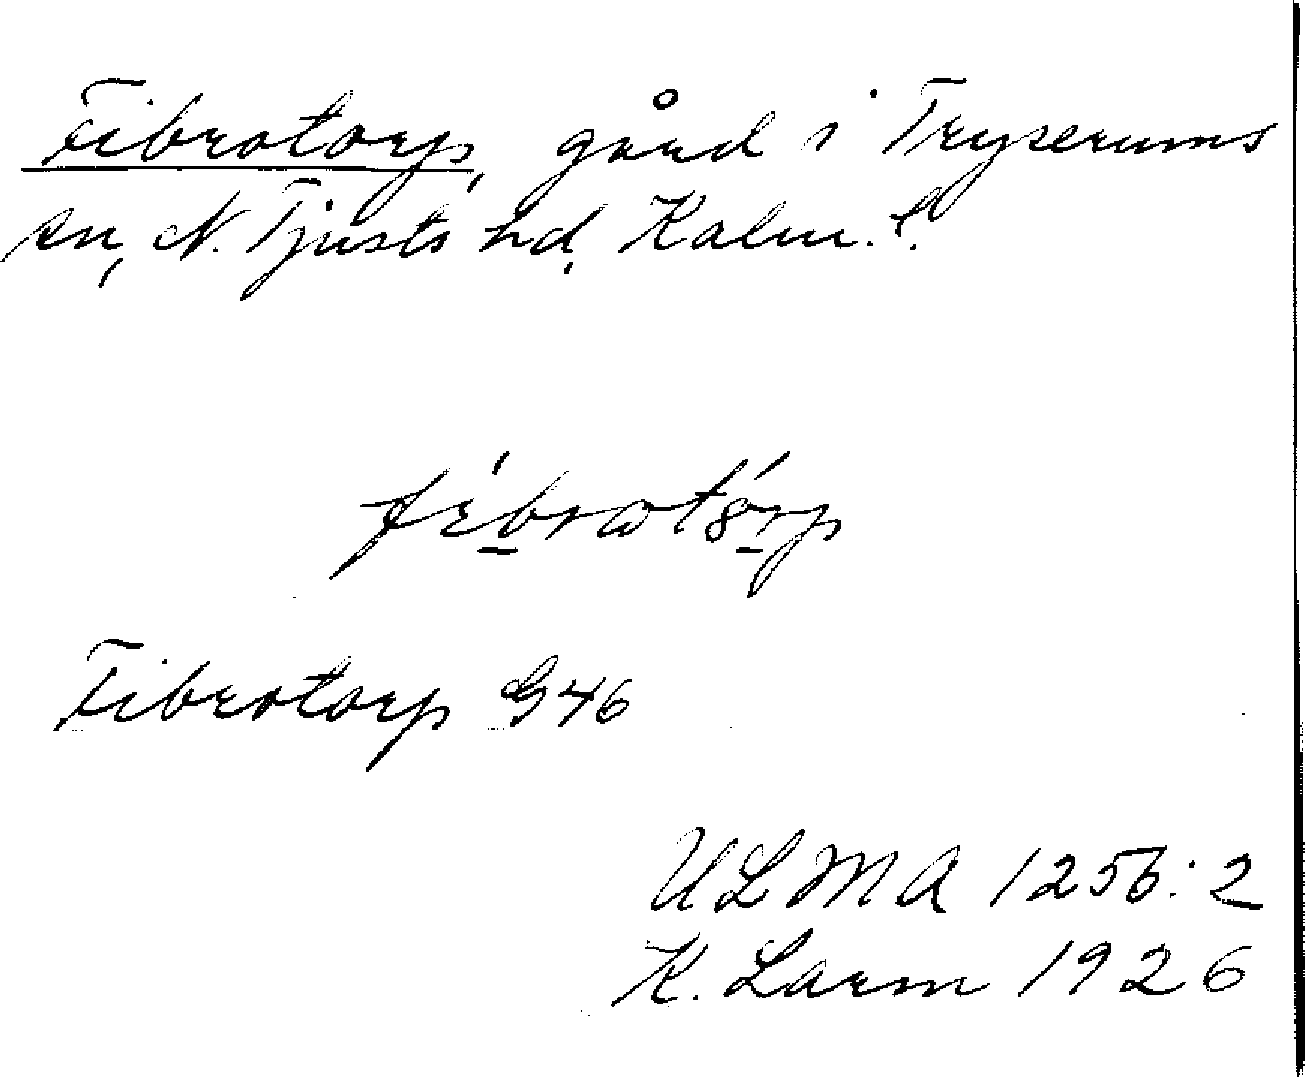 Fibrotorp, gård i Tryserums
sn, N. Tjusts hd, Kalm. l.
Fibrotorp G46
ULMA 1256:2
K. Larm 1926